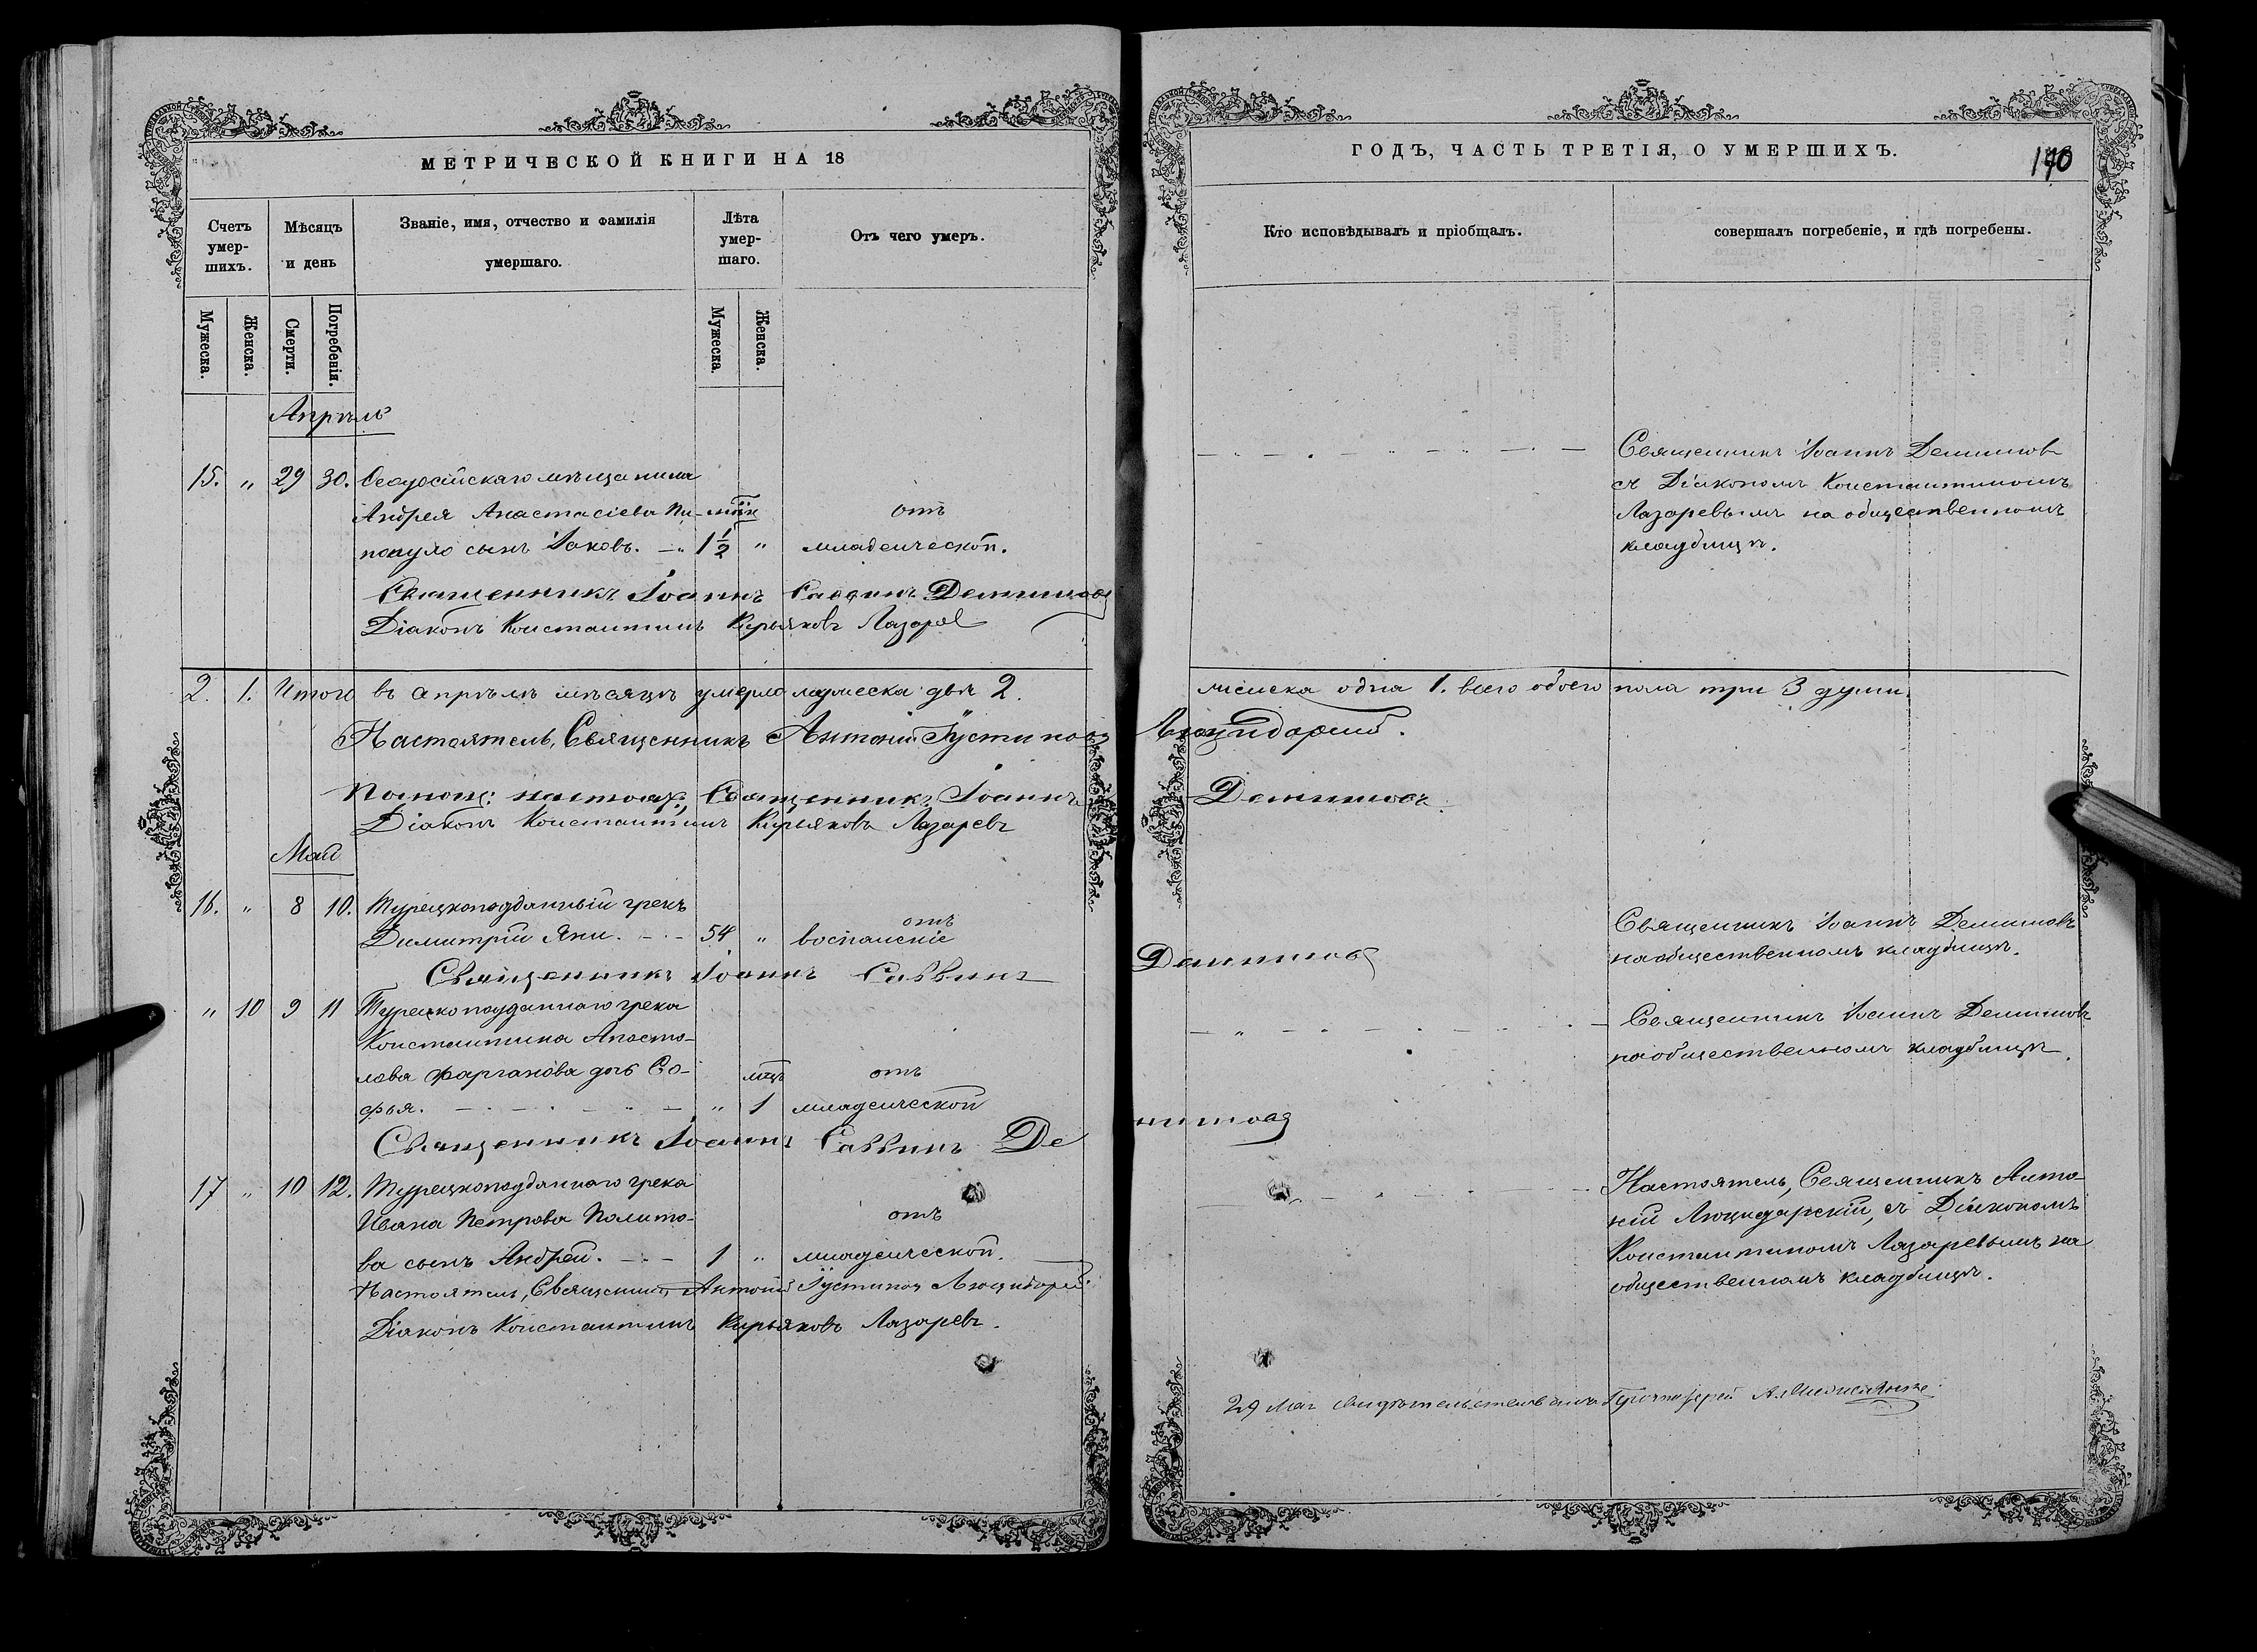 МЕТРИЧЕСКОЙ КНИГИ НА 18
Счетъ умер-шихъ.
Мѣсяцъ и день
Званіе, имя, отчество и фамилія умершаго.
Лѣта умер-шаго.
Отъ чего умеръ.
Мужеска.
Женска.
Смерти.
Погребенія.
Мужеска.
Женска.
Апрѣль
15. „ 29 30. Ѳеодосійскаго мѣщанина
Андрея Анастасіева отъ
сынъ Іаковъ. 1 1/2 „ младенческой.
Священникъ Іоаннъ Саввинъ Демишовъ
Діаконъ Константинъ Кирьяковъ Лазаревъ
2. 1. Итого въ апрѣлѣ мѣсяцѣ умерло мужеска два 2.
Настоятель, Священникъ Антоній Іустиновъ
Помощ: настоят: Священникъ Іоаннъ
Діаконъ Константинъ Кирьяковъ Лазаревъ
Май
16. „ 8 10. Турецкоподданный грекъ
отъ
Димитрій Яни. 54 „ воспаленіе
Священникъ Іоаннъ Саввинъ
„ 10 9 11 Турецкоподданнаго грека
Константина Апосто-
лова Фарганова дочь Со- мѣц отъ
фья. „ 1 младенческой
Священникъ Іоаннъ Саввинъ Де
17 „ 10 12. Турецкоподданнаго грека
Ивана Петрова Полито- отъ
ва сынъ Андрей. 1 „ младенческой.
Настоятель, Священникъ Антоній Іустиновъ Люцидарскій.
Діаконъ Константинъ Кирьяковъ Лазаревъ.
ГОДЪ, ЧАСТЬ ТРЕТІЯ, О УМЕРШИХЪ.
170
Кто исповѣдывалъ и пріобщалъ.
совершалъ погребеніе, и гдѣ погребены.
Священникъ Іоаннъ Демишовъ
съ Діакономъ Константиномъ
Лазаревымъ на общественномъ
кладбищѣ.
женска одна 1. всего обоего пола три 3 души.
Люцидарскій.
Демишовъ
Священникъ Іоаннъ Демишовъ
на общественномъ кладбищѣ.
Демишовъ
Священникъ Іоаннъ Демишовъ
на общественномъ кладбищѣ.
мишовъ
Настоятель, Священникъ Анто-
ній Люцидарскій, съ Діакономъ
Константиномъ Лазаревымъ на
общественномъ кладбищѣ.
29 Мая свидѣтельствовалъ Протоіерей А.